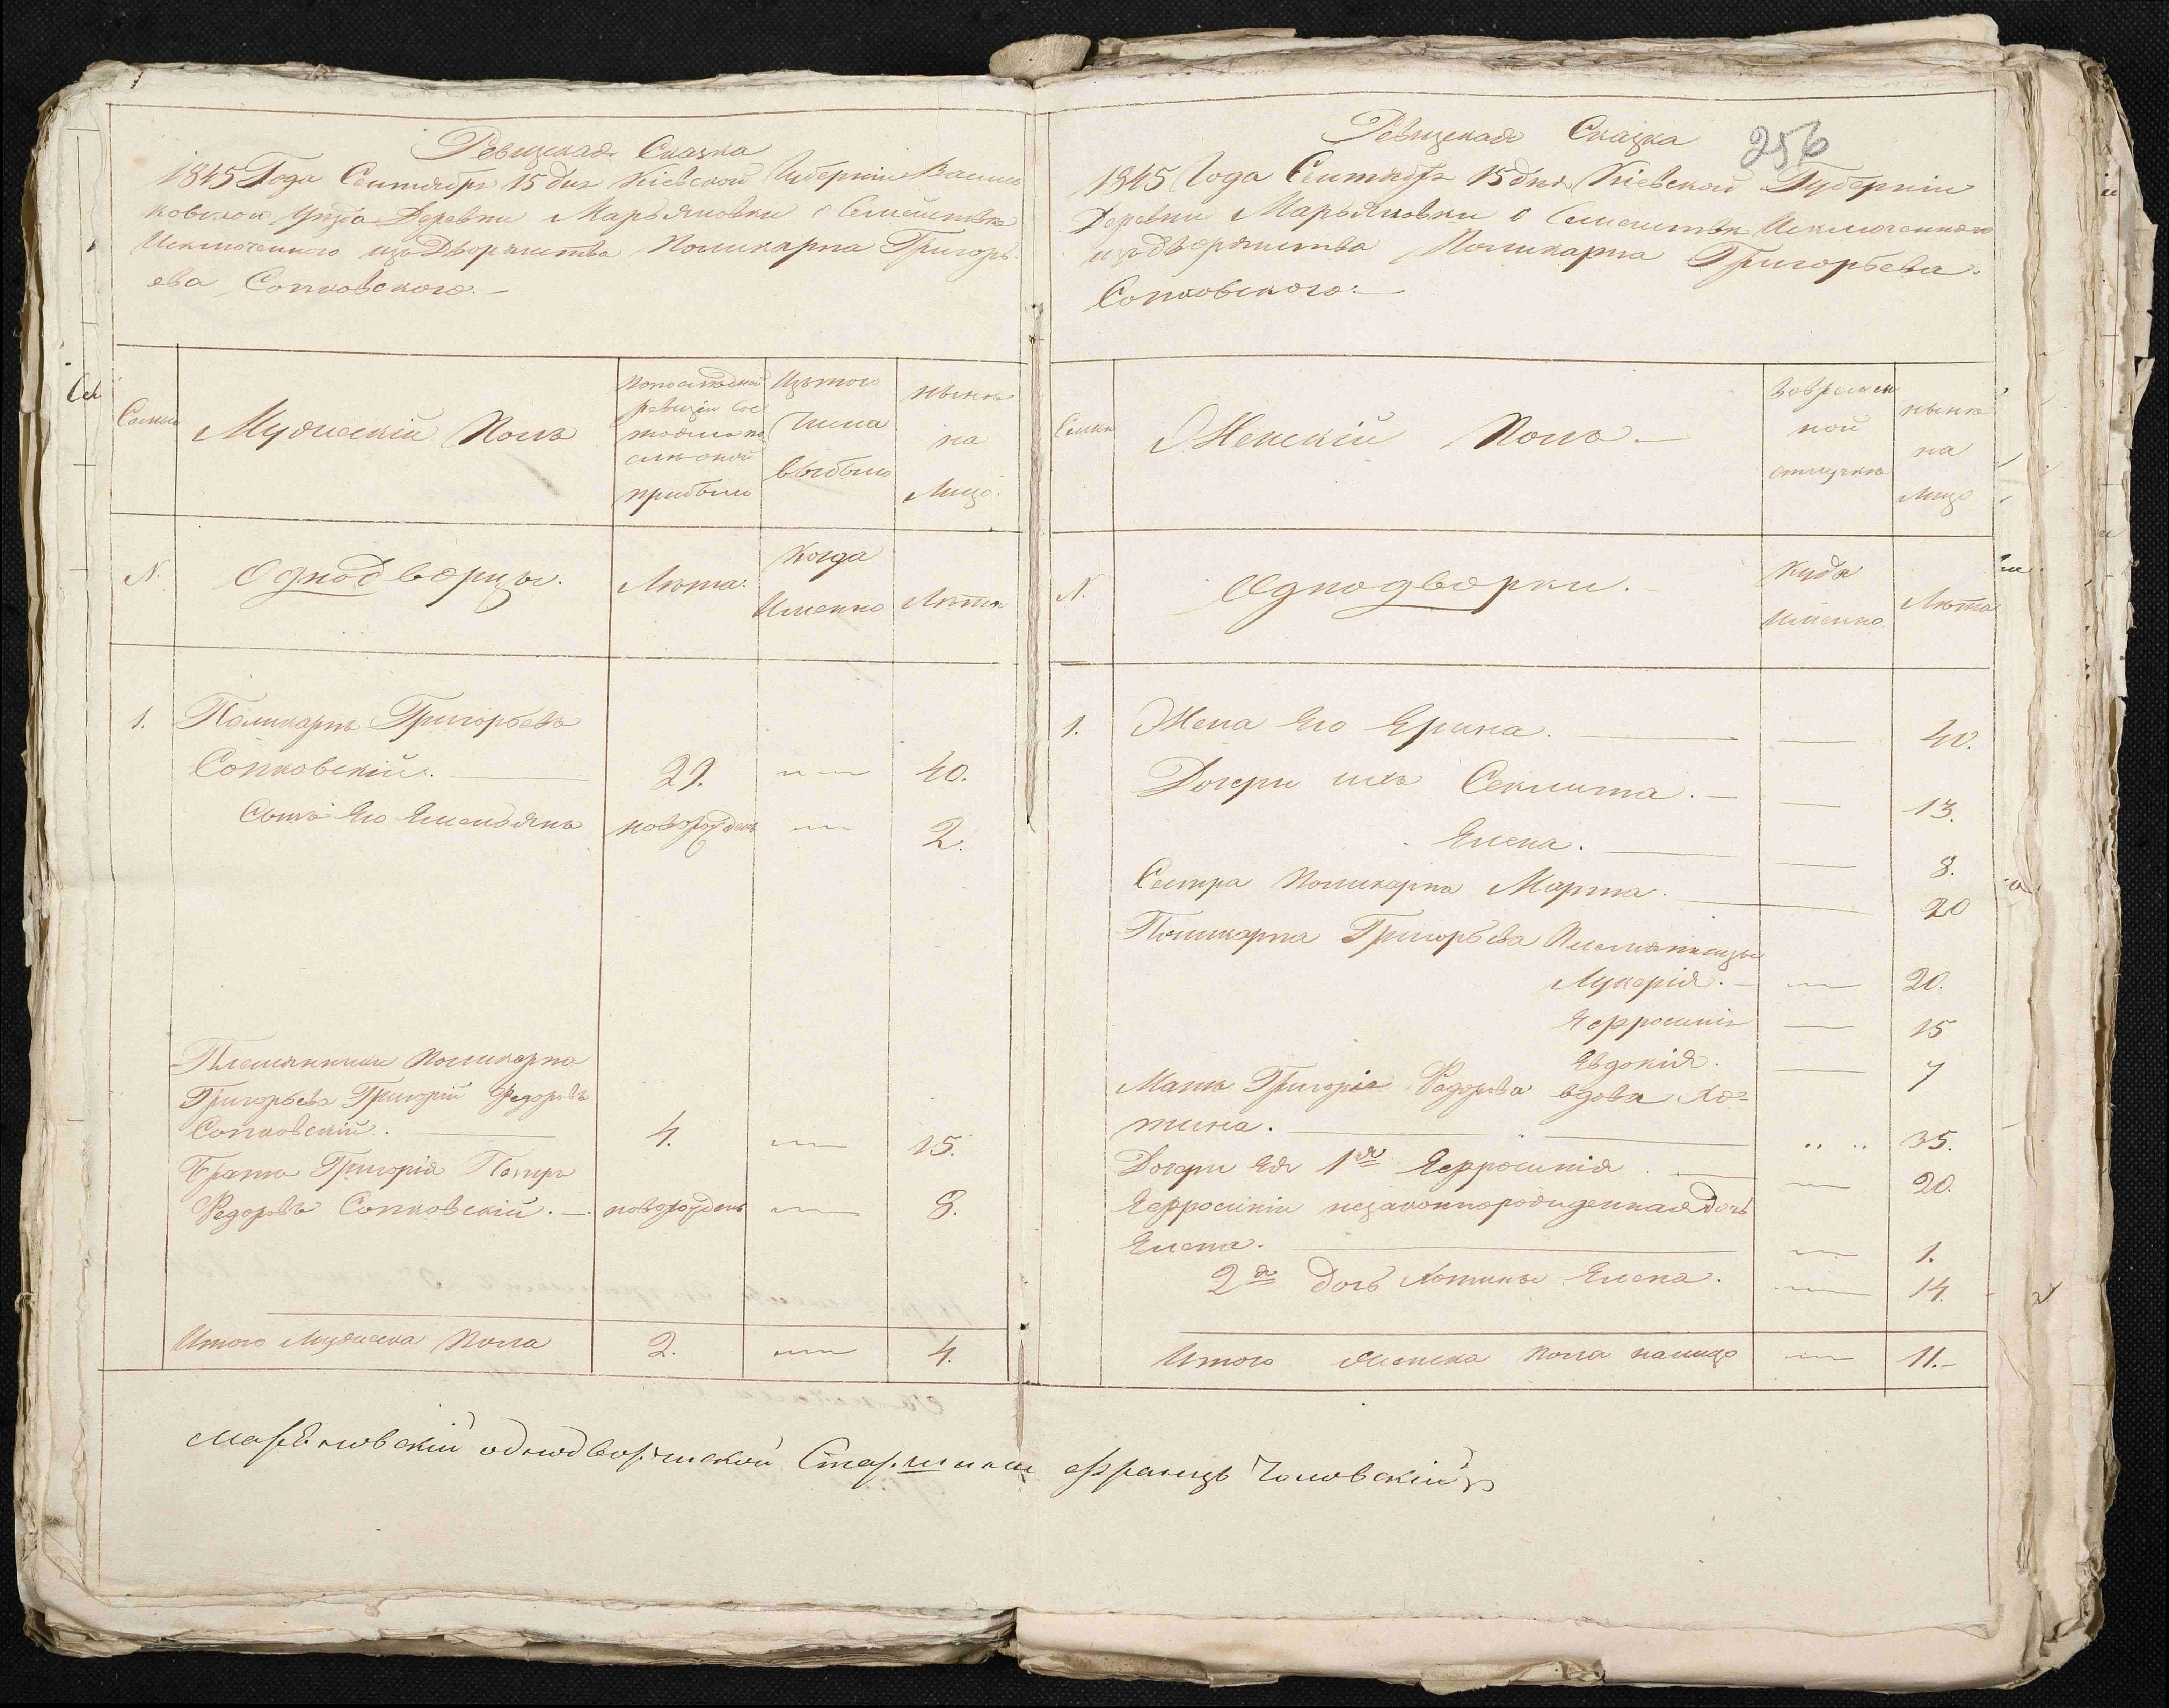 Ревизская Сказка
1845 Года Сентября 15 дня Кіевской Губерніи Василь
ковскаго Уезда Деревни Марьяновки о Семействе
Исключенного изъ Дворянства Поликарпа Григорь
ева Сопковского.
Семьи
Мужескій Полъ
По последней
ревизіи сос
тояло и по
сле оной
прибыло
Изъ того
Числа
выбыло
ныне
на
Лицо.
N.
Однодворцы.
Лета.
Когда
Именно
Лета
1.
Поликарпъ Григорьевъ
Сопковскій. 29. 40.
Сынъ Его Емельянъ новорожденъ 2.
Племянники Поликарпа
Григорьева Григорій Федоровъ
Сопковскій. 4. 15.
Братъ Григорія Петръ
Федоровъ Сопковскій. новорожденъ 8.
Итого Мужеска Пола 2. 4.
256
Ревизская Сказка
1845 Года Сентября 15 дня Кіевской Губерніи
Деревни Марьяновки о Семействе Исключенного
изъ дворянства Поликарпа Григорьева
Сопковского.
Семьи
Женскій Полъ
Во времен
ной
отлучке
ныне
на
лицо
N.
Однодворки.
Куда
Именно
Лета
1. Жена Его Ерина. 40.
Дочери ихъ Секлита. 13.
Елена. 8.
Сестра Поликарпа Марта. 20
Поликарпа Григорьева Племянницы
Лукерія. 20.
Ефросинія 15
Евдокія. 7
Мать Григорія Федорова вдова Хо=
тина. 35.
Дочери Ея 1я Ефросинія. 20.
Ефросиніи незаконнорожденная дочь
Елена. 1.
2я дочь Хотины Елена. 14.
Итого женска пола налицо 11.
Марьяновскій однодворческой Старшина Францъ Чоловскій